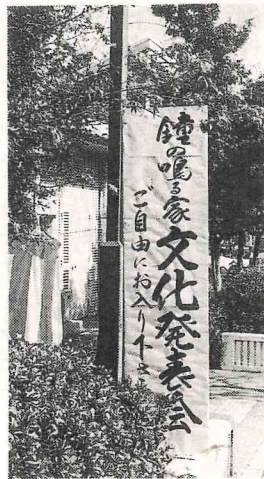 鐘の鳴る家文化発表会
ご自由にお入り下さ